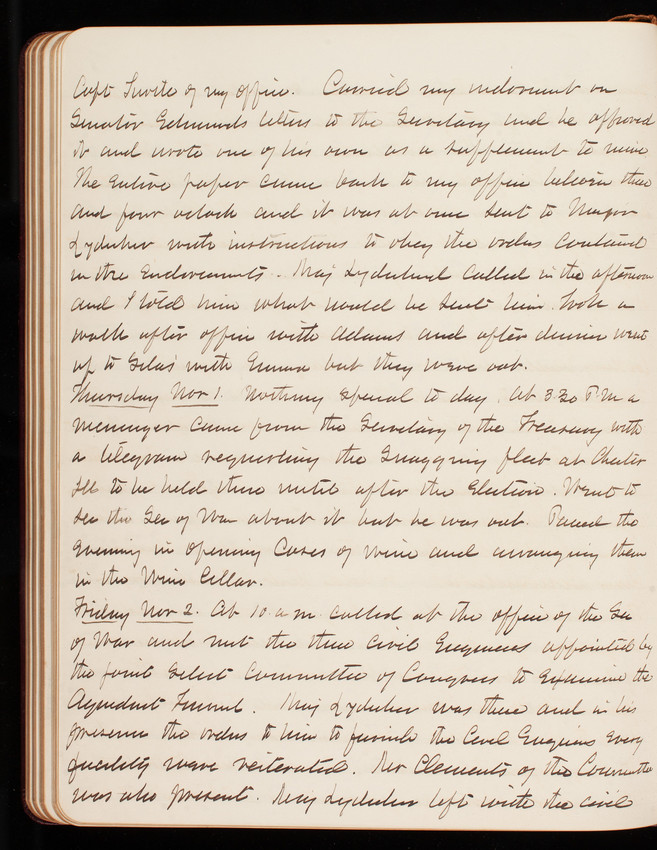 Capt Turtle of my office. Carried my indorsement on
Senator Edmunds letters to the Secretary and he approved
it and wrote one of his own as a supplement to mine
The entire paper came back to my office between three
and four oclock and it was at once sent to Major
Lydecker with instructions to obey the orders contained
in the Endorsements. Maj Lydecker called in the afternoon
and I told him what would be sent him. Took a
walk after office with Adams and after dinner went
up to Silas' with Emma but they were out.
Thursday Nor 1. Nothing special to day. At 3.20 P.M a
messenger came from the Secretary of the Treasury with
a telegram requesting the Snagging fleet at Chester
Ill to be held there until after the Election. Went to
see the Sec of War about it but he was out. Passed the
Evening in opening Cases of wine and arranging them
in the Wine Cellar.
Friday Nov 2. At 10. a m. called at the office of the Sec
of War and met the three Civil Engineers appointed by
the joint Select Committee of Congress to Examine the
Aqueduct Tunnel. Maj Lydecker was there and in his
presence the orders to him to furnish the Civil Engineers every
facility were reiterated. Mr Clements of the Committee
was also present. Maj Lydecker left with the civil